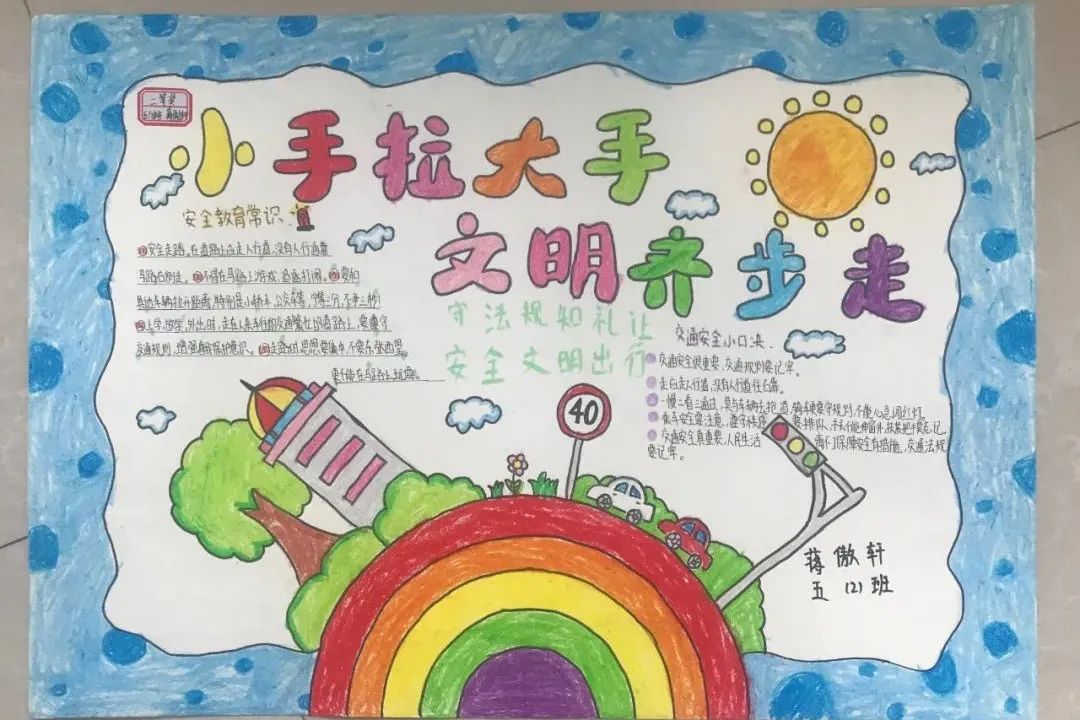 二等奖
小手拉大手
文明齐步走
安全教育常识
①安全走路,在道路上应走人行道,没有人行道靠
马路右侧走。②不得在马路上游戏,追逐打闹。③要和
其他车辆拉开距离,特别是小轿车,公交车等,宁等三分,不争二秒!
④上学,放学,外出时,走在人来车往的交通繁忙的道路上,要遵守
交通规则,增强自我保护意识。⑤走路时思想要集中,不要东张西望,
更不能在马路上玩耍。
守法规知礼让
安全文明出行
交通安全小口决
交通安全很重要,交通规则要记牢。
走山走人行道,没有人行道往右靠。
一慢二看三通过,莫与车辆去抢道,骑车更要守规则,不能心急闯红灯。
乘车安全要注意,遵守秩序要排队,
交通安全真重要,人民生活
离不了保障安全有措施,交通法规
要记牢。
40
蒋傲轩
五(2)班